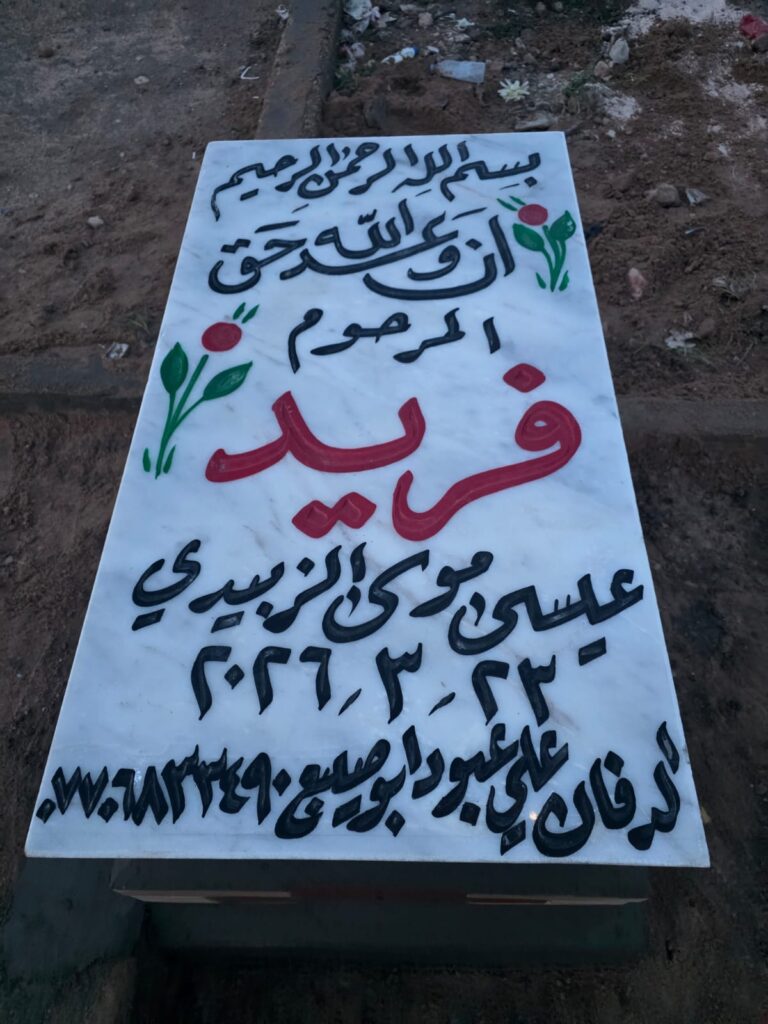 بسم الله الرحمن الرحيم
ان وعد الله حق
المرحوم
فريد
عيسى موسى الزبيدي
٢٣ - ٣ - ٢٠٢٦
الدفان علي عبود ابو صليع ٠٧٧٠٦٨٣٣٤٩٠